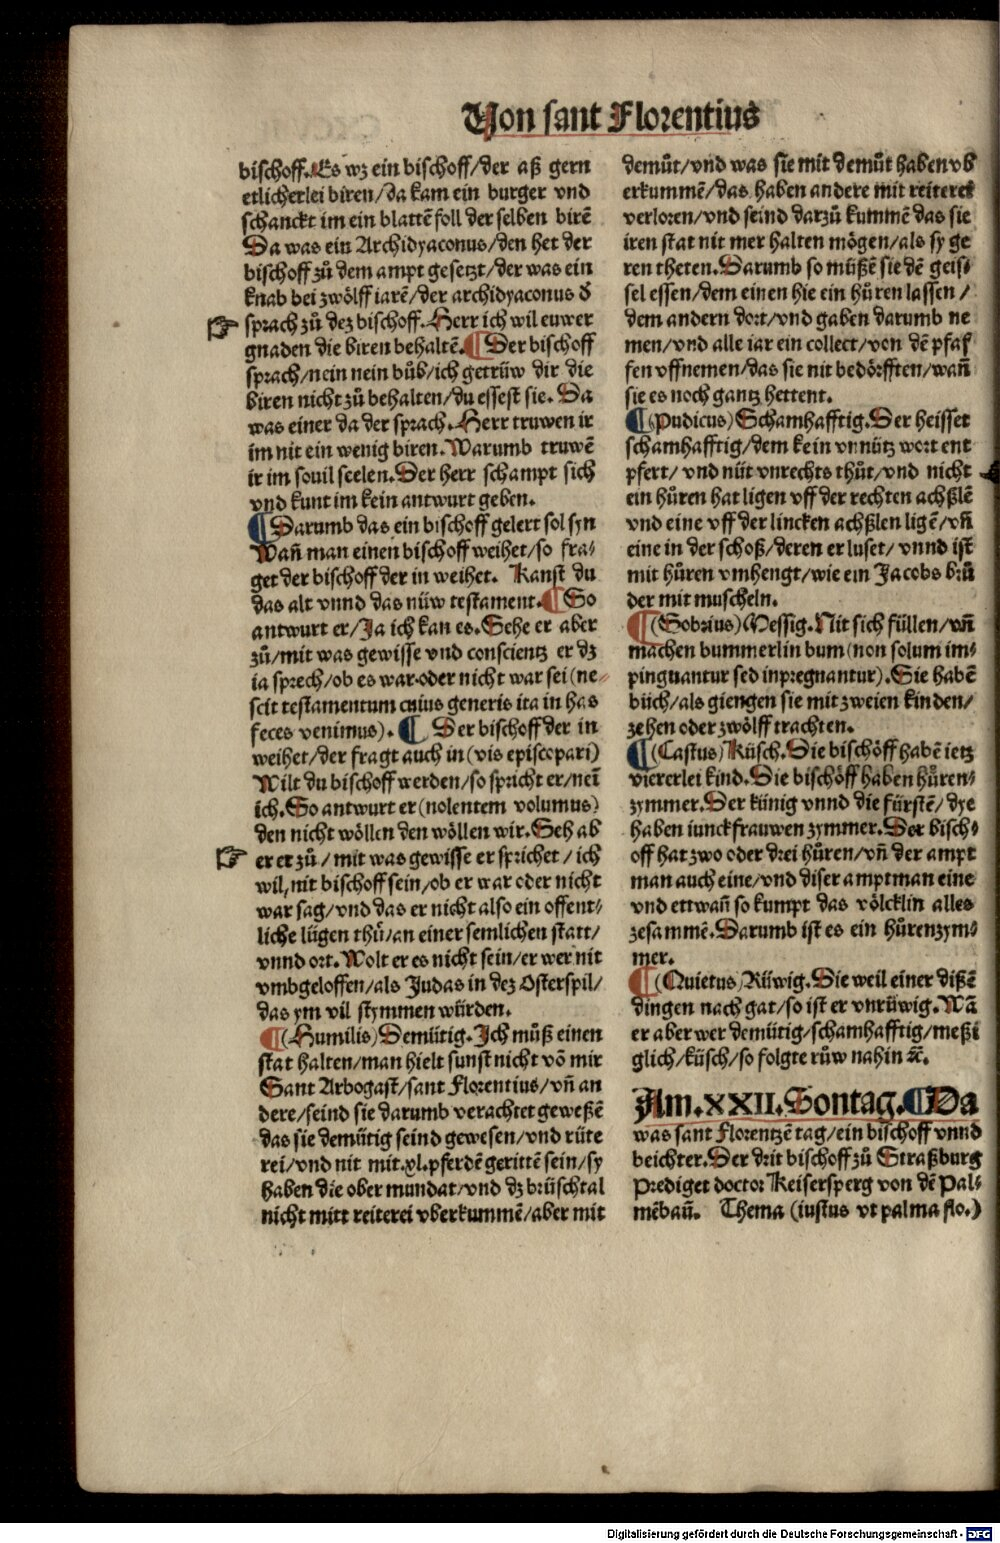 Von sant Florentius
bischoff. Es wz ein bischoff/der aß gern
etlicherlei biren/da kam ein burger vnd
schanckt im ein blattē foll der selben birē
Da was ein Archidyaconus/den het der
bischoff zů dem ampt gesetzt/der was ein
knab bei zwölff iarē/der archidyaconus d̕
sprach zů dez bischoff. Herr ich wil euwer
gnaden die biren behaltē. ¶ Der bischoff
sprach/nein nein bůb/ich getrüw dir die
biren nicht zů behalten/du essest sie. Da
was einer da der sprach. Herr truwen ir
im nit ein wenig biren. Warumb truwē
ir im souil seelen. Der herr schampt sich
vnd kunt im kein antwurt geben.
¶ Darumb das ein bischoff gelert sol syn
Wañ man einen bischoff weihet/so fra⸗
get der bischoff der in weihet. Kanst du
das alt vnnd das nüw testament. ¶ So
antwurt er/Ja ich kan es. Sehe er aber
zů/mit was gewisse vnd conscientz er dz
ia sprech/ob es war oder nicht war sei (ne⸗
scit testamentum cuius generis ita in has
feces venimus). ¶ Der bischoff der in
weihet/der fragt auch in (vis episcopari)
Wilt du bischoff werden/so spricht er/neī
ich. So antwurt er (nolentem volumus)
den nicht wöllen den wöllen wir. Seh ab
er er zů/mit was gewisse er sprichet/ich
wil nit bischoff sein/ob er war oder nicht
war sag/vnd das er nicht also ein offent⸗
liche lügen thů/an einer semlichen statt/
vnnd ort. Wolt er es nicht sein/er wer nit
vmbgeloffen/als Judas in dez Osterspil/
das ym vil stymmen würden.
¶ (Humilis) Demütig. Ich můß einen
stat halten/man hielt sunst nicht vō mir
Sant Arbogast/sant Florentius/vñ an
dere/seind sie darumb verachtet geweßē
das sie demütig seind gewesen/vnd rüte
rei/vnd nit mit .xl. pferdē gerittē sein/sy
haben die ober mundat/vnd dz brüschtal
nicht mitt reiterei vberkummē/aber mit
demůt/vnd was sie mit demůt haben vb
erkummē/das haben andere mit reiterei
verloren/vnd seind darzů kummē das sie
iren stat nit mer halten mögen/als sy ge
ren theten. Darumb so můßē sie dē geis⸗
sel essen/dem einen hie ein hůren lassen/
dem andern dort/vnd gaben darumb ne
men/vnd alle iar ein collect/von dē pfaf
fen vffnemen/das sie nit bedörfften/wañ
sie es noch gantz hettent.
¶ (Pudicus) Schamhafftig. Der heisset
schamhafftig/dem kein vnnütz wort ent
pfert/vnd nüt vnrechts thůt/vnd nicht
ein hůren hat ligen vff der rechten achßlē
vnd eine vff der lincken achßlen ligē/vñ
eine in der schoß/deren er luset/vnnd ist
mit hůren vmhengt/wie ein Jacobs brů
der mit muscheln.
¶ (Sobrius) Messig. Nit sich füllen/vñ
machen bummerlin bum (non solum im⸗
pinguantur sed inpregnantur). Sie habē
büch/als giengen sie mit zweien kinden/
zehen oder zwölff trachten.
¶ (Castus) Küsch. Die bischöff habē ietz
viererlei kind. Die bischöff haben hůren⸗
zymmer. Der künig vnnd die fürstē/dye
haben iunckfrauwen zymmer. Der bisch⸗
off hat zwo oder drei hůren/vñ der ampt
man auch eine/vnd diser amptman eine
vnd ettwañ so kumpt das völcklin alles
zesammē. Darumb ist es ein hůrenzym⸗
mer.
¶ (Quietus) Rüwig. Die weil einer dißē
dingen nach gat/so ist er vnrüwig. Wā
er aber wer demütig/schamhafftig/meßi
glich/küsch/so folgte růw nahin ꝛc.
Am .XXII. Sontag. ¶ Da
was sant Florentzē tag/ein bischoff vnnd
beichter. Der drit bischoff zů Straßburg
Prediget doctor Keisersperg von dē Pal⸗
mēbaū. Thema (iustus vt palma flo.)
Digitalisierung gefördert durch die Deutsche Forschungsgemeinschaft - DFG